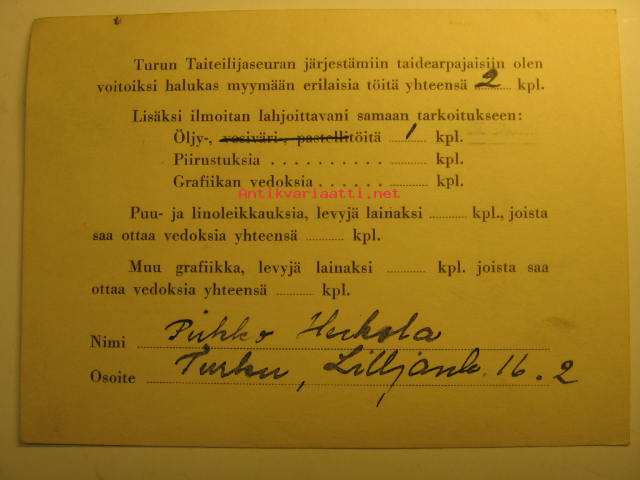 Turun Taiteilijaseuran järjestämiin taidearpajaisiin olen
voitoiksi halukas myymään erilaisia töitä yhteensä 2 kpl.
Lisäksi ilmoitan lahjoittavani samaan tarkoitukseen:
Öljy-, vesiväri-, pastellitöitä 1 kpl.
Piirustuksia . . . . . . . . . . kpl.
Grafiikan vedoksia . . . . . . kpl.
Antikvariaatti.net
Puu- ja linoleikkauksia, levyjä lainaksi ............ kpl., joista
saa ottaa vedoksia yhteensä ............ kpl.
Muu grafiikka, levyjä lainaksi ............ kpl. joista saa
ottaa vedoksia yhteensä ............ kpl.
Nimi Pirkko Heikola
Osoite Turku, Lilljank. 16. 2